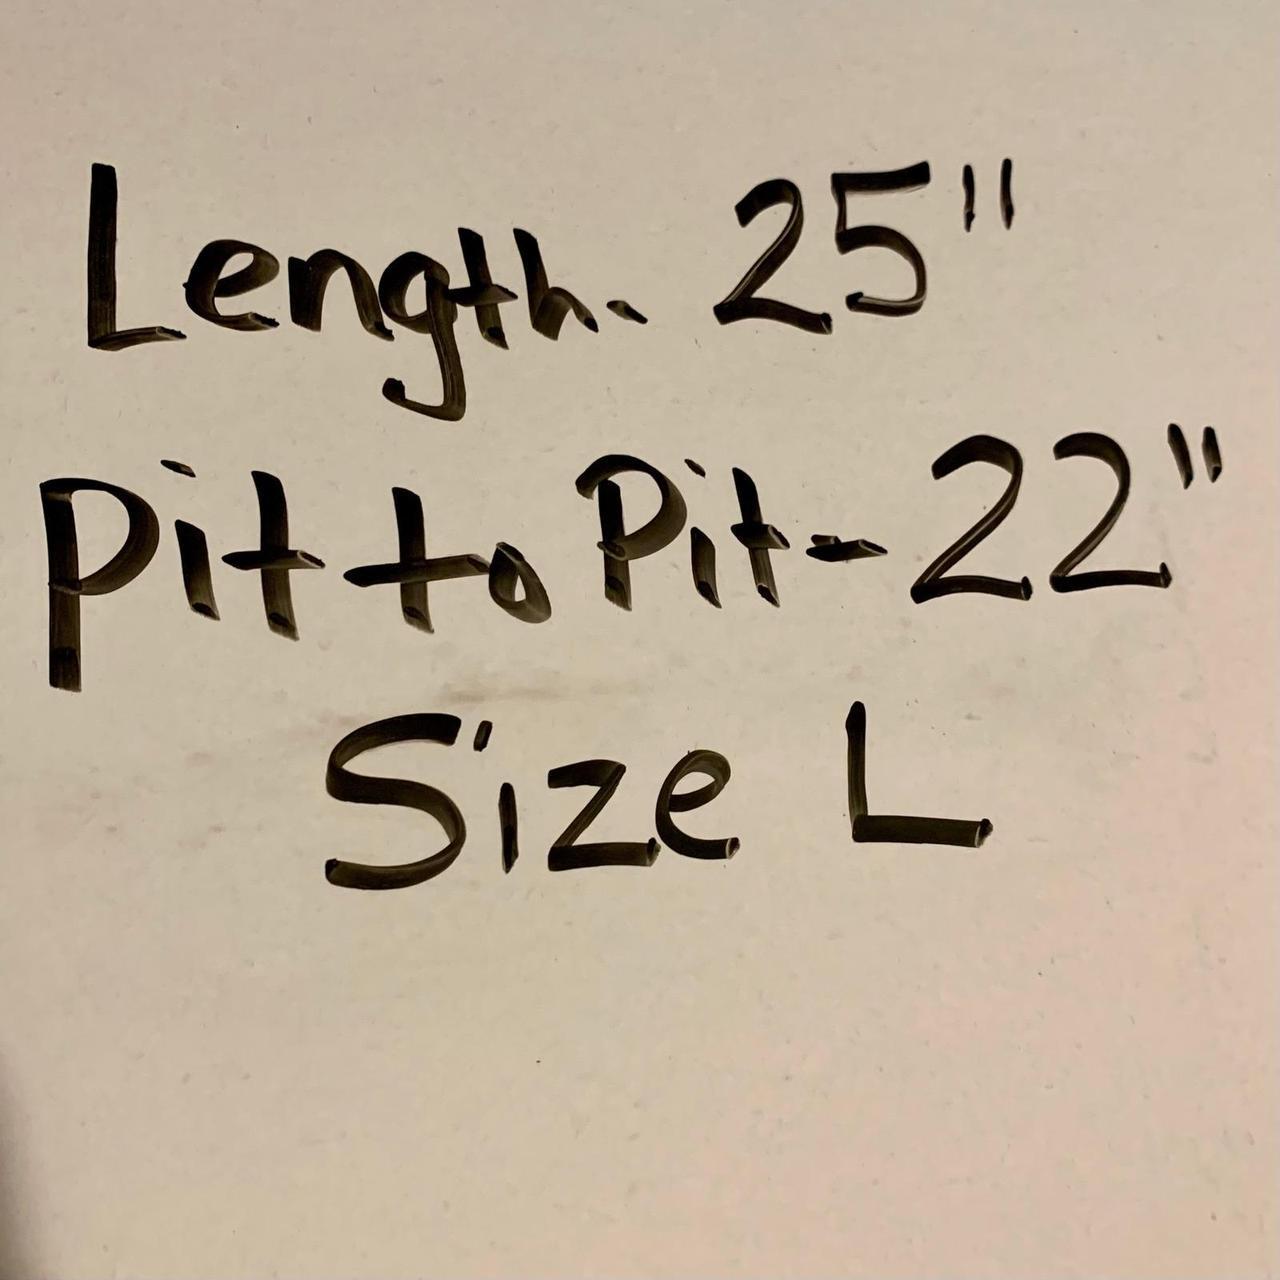 Length. 25"
Pit to Pit - 22"
Size L